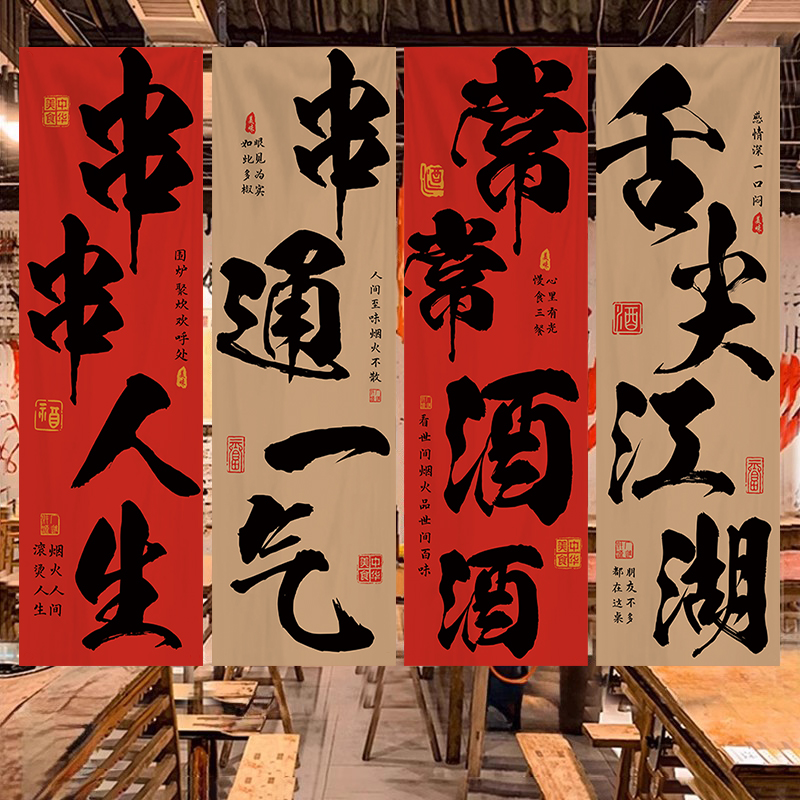 串串人生
中华美食
围炉聚炊欢呼处
美味
烟火人间
滚烫人生
串通一气
美味
眼见为实
如此多椒
人间至味烟火不散
中华美食
常常酒酒
酒
美味
心里有光
慢食三餐
看世间烟火品世间百味
中华美食
舌尖江湖
感情深一口闷
美味
酒
朋友不多
都在这桌